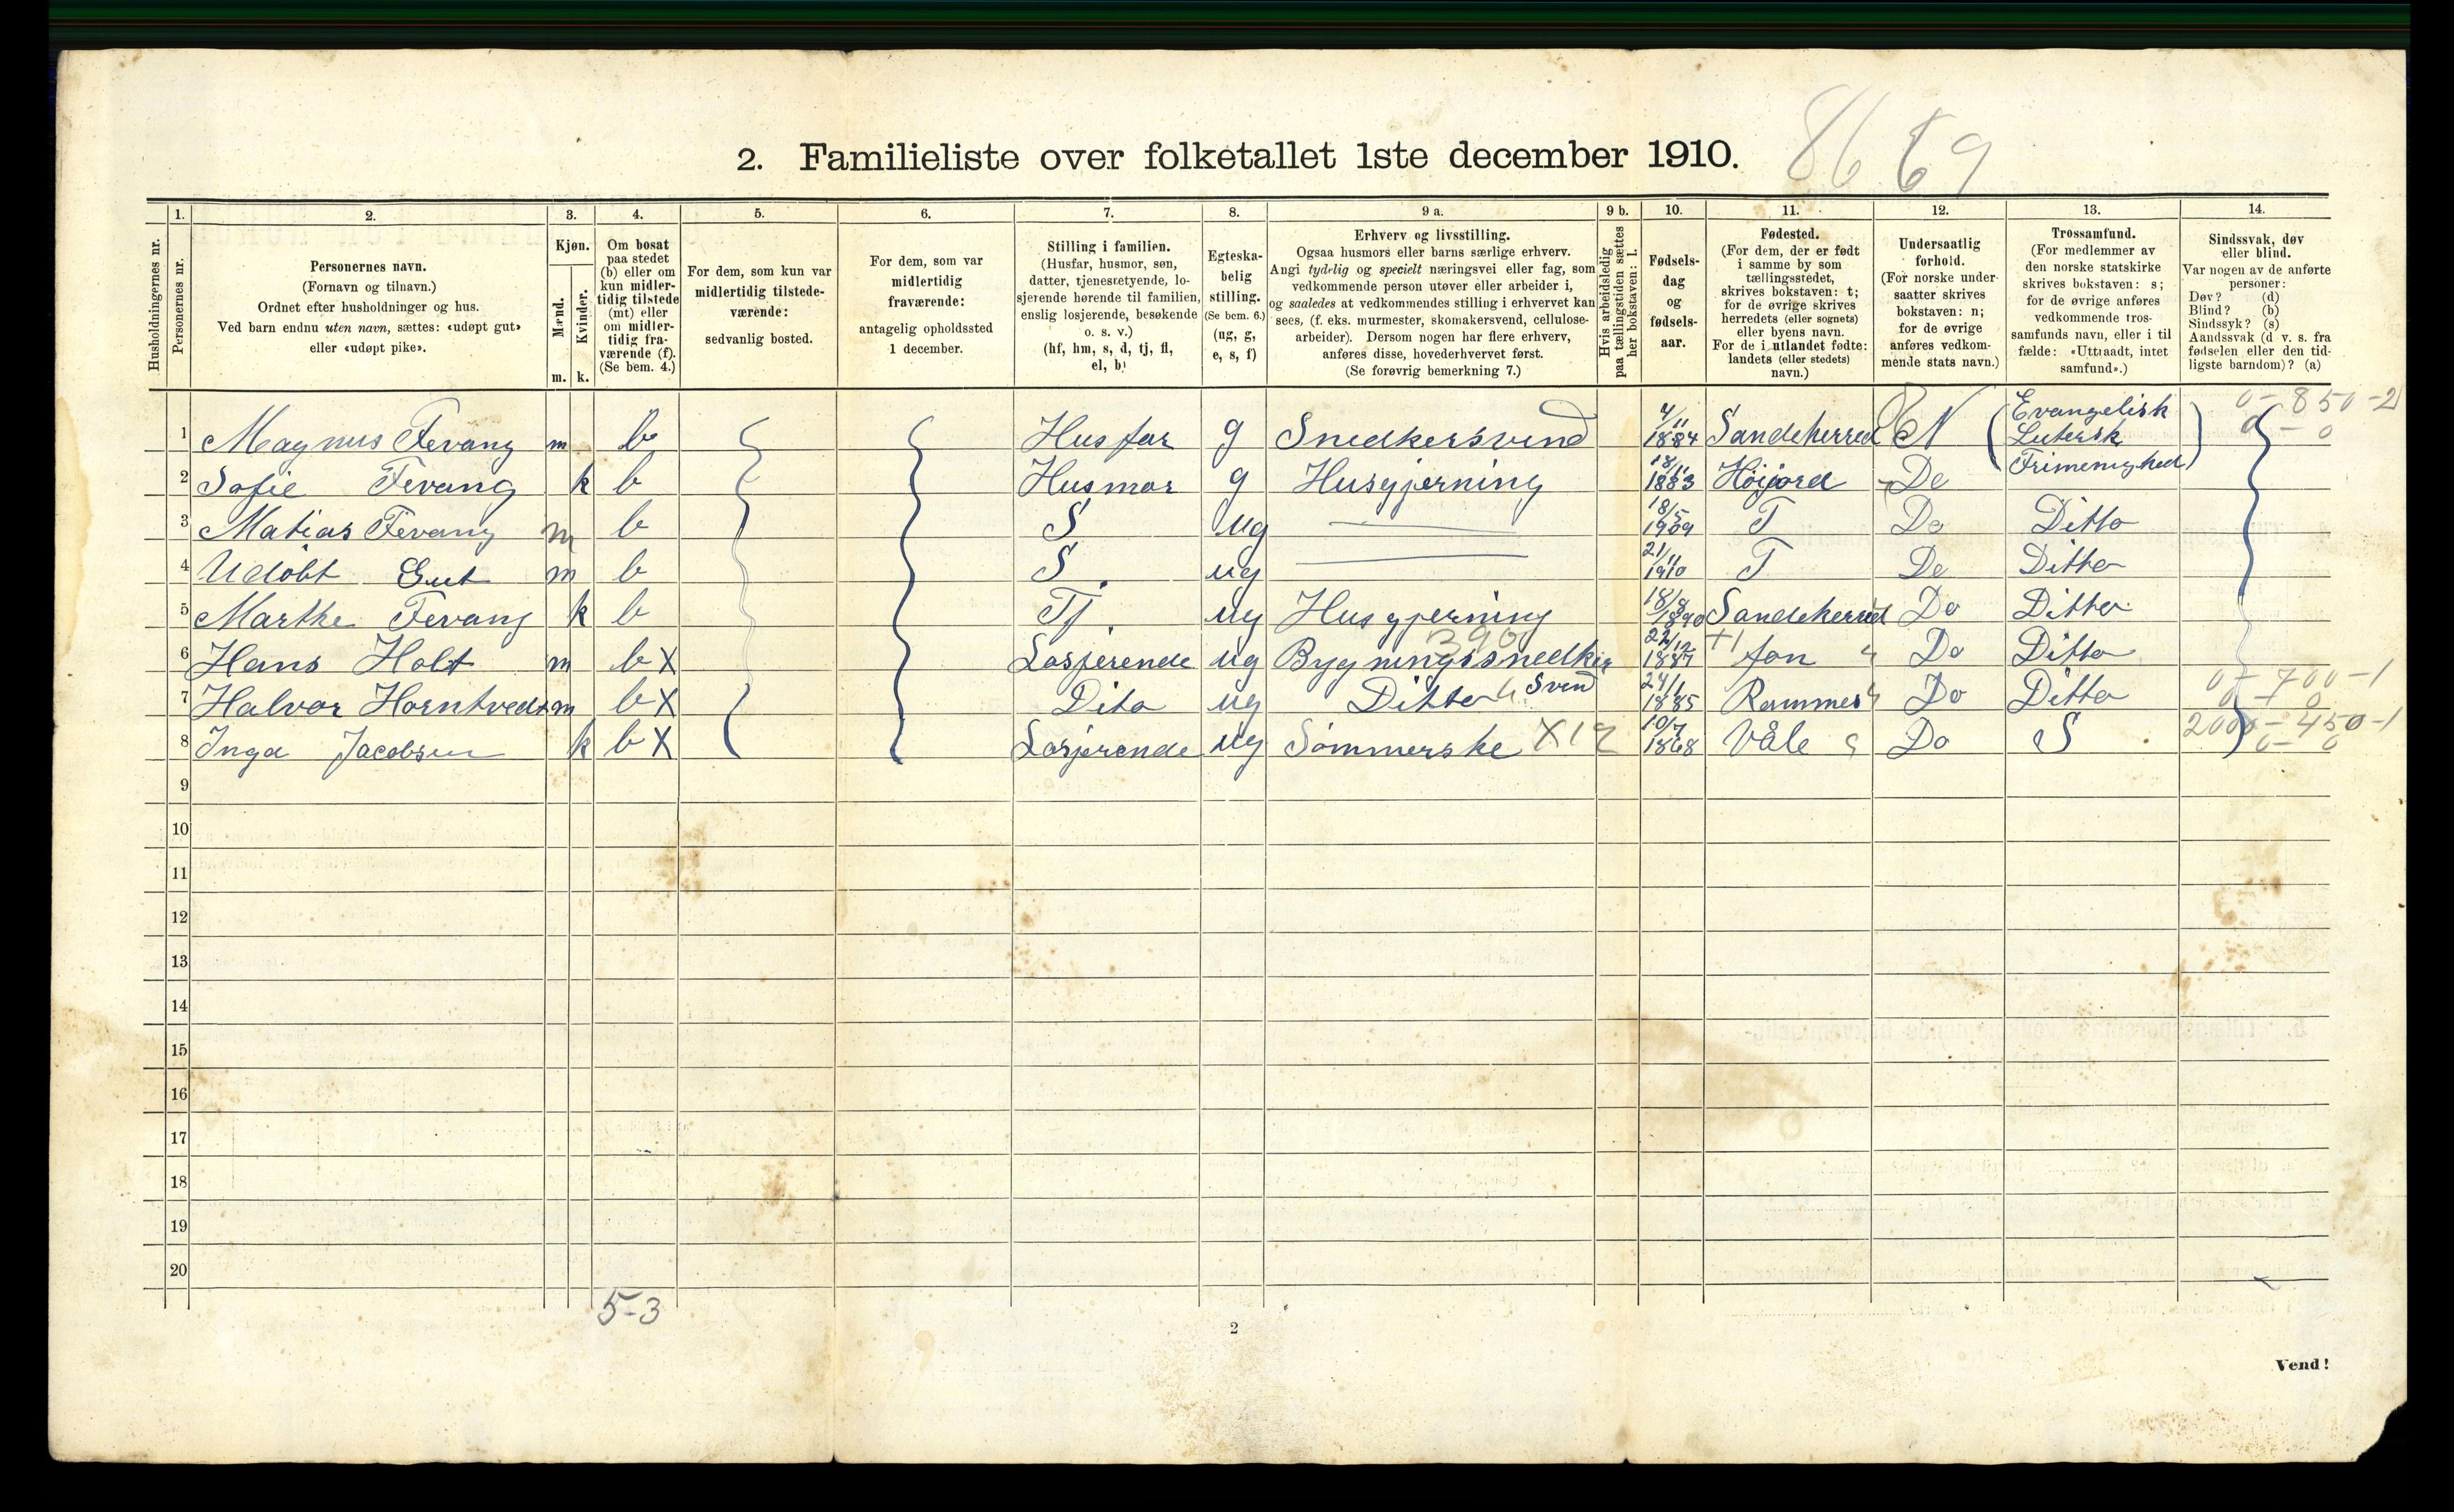 2. Familieliste over folketallet 1ste december 1910.
1. 2. 3. 4. 5. 6. 7. 8. 9 a. 9 b. 10. 11. 12. 13. 14.
Husholdningernes nr.
Personernes nr.
Personernes navn.
(Fornavn og tilnavn.)
Ordnet efter husholdninger og hus.
Ved barn endnu uten navn, sættes: «udøpt gut»
eller «udøpt pike».
Kjøn.
Mænd.
Kvinder.
m. k.
Om bosat
paa stedet
(b) eller om
kun midler-
tidig tilstede
(mt) eller
om midler-
tidig fra-
værende (f).
(Se bem. 4.)
For dem, som kun var
midlertidig tilstede-
værende:
sedvanlig bosted.
For dem, som var
midlertidig
fraværende:
antagelig opholdssted
1 december.
Stilling i familien.
(Husfar, husmor, søn,
datter, tjenestetyende, lo-
sjerende hørende til familien,
enslig losjerende, besøkende
o. s. v.)
(hf, hm, s, d, tj, fl,
el, b)
Egteska-
belig
stilling.
(Se bem. 6.)
(ug, g,
e, s, f)
Erhverv og livsstilling.
Ogsaa husmors eller barns særlige erhverv.
Angi tydelig og specielt næringsvei eller fag, som
vedkommende person utøver eller arbeider i,
og saaledes at vedkommendes stilling i erhvervet kan
sees, (f. eks. murmester, skomakersvend, cellulose-
arbeider). Dersom nogen har flere erhverv,
anføres disse, hovederhvervet først.
(Se forøvrig bemerkning 7.)
Hvis arbeidsledig
paa tællingstiden sættes
her bokstaven: l.
Fødsels-
dag
og
fødsels-
aar.
Fødested.
(For dem, der er født
i samme by som
tællingsstedet,
skrives bokstaven: t;
for de øvrige skrives
herredets (eller sognets)
eller byens navn.
For de i utlandet fødte:
landets (eller stedets)
navn.)
Undersaatlig
forhold.
(For norske under-
saatter skrives
bokstaven: n;
for de øvrige
anføres vedkom-
mende stats navn.)
Trossamfund.
(For medlemmer av
den norske statskirke
skrives bokstaven: s;
for de øvrige anføres
vedkommende tros-
samfunds navn, eller i til
fælde: «Uttraadt, intet
samfund».)
Sindssvak, døv
eller blind.
Var nogen av de anførte
personer:
Døv? (d)
Blind? (b)
Sindssyk? (s)
Aandssvak (d v. s. fra
fødselen eller den tid-
ligste barndom)? (a)
1 Magnus Fevang m b Husfar g Snedkersvend 4/11 1884 Sandeherred N Evangelisk Lutersk Frimenighed 0-850-2
2 Sofie Fevang k b Husmor g Husgjerning 18/11 1883 Höijord Do
3 Matias Fevang m b S ug 18/5 1909 T Do Ditto
4 Udöbt Gut m b S. ug 21/11 1910 T Do Ditto
5 Marthe Fevang k b Tj. ug Husgjerning 18/8 1890 Sandeherred Do Ditto
6 Hans Holt m b X Losjerende ug Bygningssnedker 22/12 1887 fon Do Ditto
7 Halvor Horntvedt m b X Dito ug Ditto Svend 24/1 1885 Ramnes Do Ditto 0-700-1
8 Inga Jacobsen k b X Losjerende ug Sömmerske X12 10/7 1868 Våle Do S 2000-450-1
9
10
11
12
13
14
15
16
17
18
19
20
5-3
2
Vend!